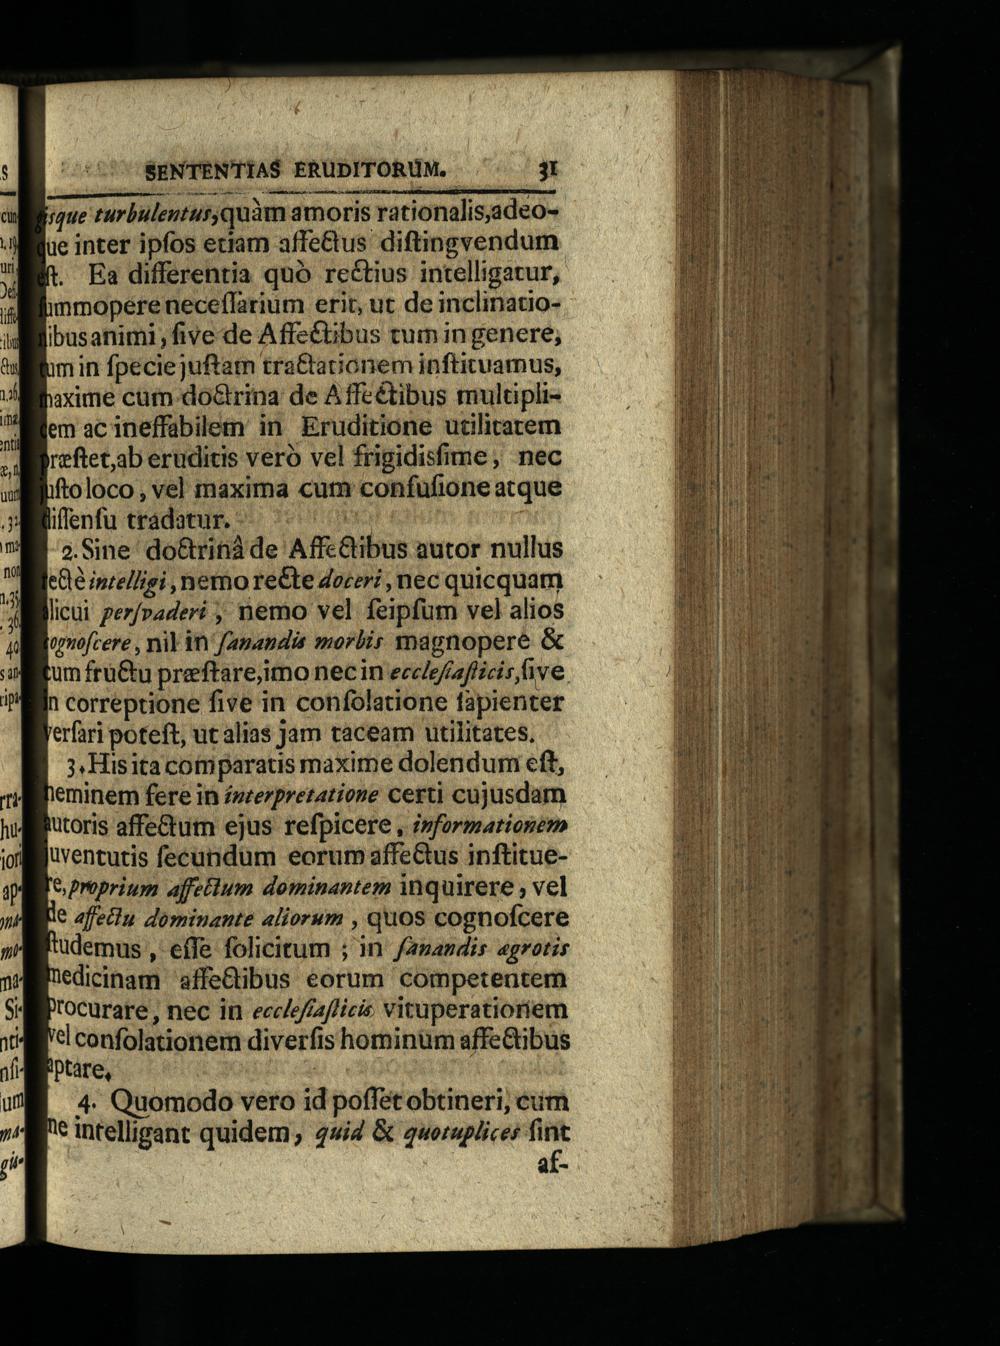 SENTENTIAS ERUDITORUM. 31
isque turbulentus, quàm amoris rationalis, adeo-
que inter ipſos etiam affectus diſtingvendum
eſt. Ea differentia quò rectius intelligatur,
ſummopere neceſſarium erit, ut de inclinatio-
nibus animi, ſive de Affectibus tum in genere,
tum in ſpecie juſtam tractationem inſtituamus,
maxime cum doctrina de Affectibus multipli-
cem ac ineffabilem in Eruditione utilitatem
præſtet, ab eruditis verò vel frigidisſime, nec
juſto loco, vel maxima cum confuſione atque
diſſenſu tradatur.
2. Sine doctrinâ de Affectibus autor nullus
rectè intelligi, nemo recte doceri, nec quicquam
alicui perſvaderi, nemo vel ſeipſum vel alios
cognoſcere, nil in ſanandis morbis magnopere &
cum fructu præſtare, imo nec in eccleſiaſticis, ſive
in correptione ſive in conſolatione ſapienter
verſari poteſt, ut alias jam taceam utilitates.
3. His ita comparatis maxime dolendum eſt,
neminem fere in interpretatione certi cujusdam
autoris affectum ejus reſpicere, informationem
juventutis ſecundum eorum affectus inſtitue-
re, proprium affectum dominantem inquirere, vel
de affectu dominante aliorum, quos cognoſcere
ſtudemus, eſſe ſolicitum; in ſanandis ægrotis
medicinam affectibus eorum competentem
procurare, nec in eccleſiaſticis vituperationem
vel conſolationem diverſis hominum affectibus
aptare.
4. Quomodo vero id poſſet obtineri, cum
ne intelligant quidem, quid & quotuplices ſint
af-